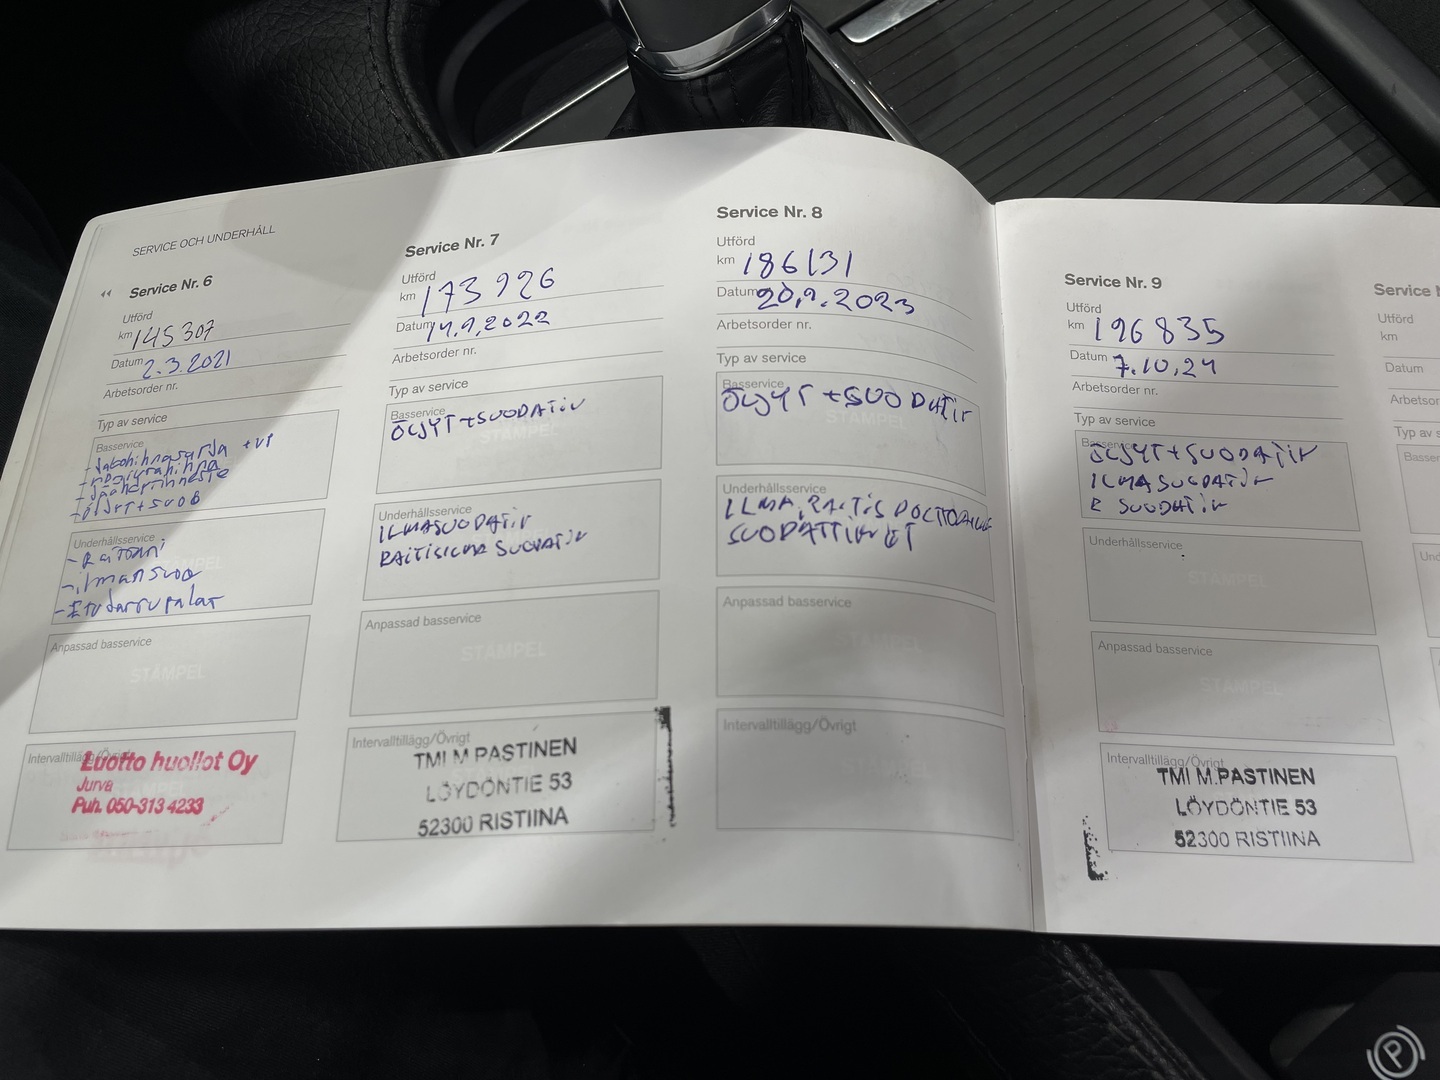 SERVICE OCH UNDERHÅLL
Service Nr. 6
Utförd
km 145 307
Datum 2.3.2021
Arbetsorder nr.
Typ av service
Basservice
- Jakohihnasarja + VP
- Jäähdytinneste
- öljyt + SUOD
Underhållsservice
- Raitisni
- ilmansuod
- Etujarrupalat
Anpassad basservice
STÄMPEL
Intervalltillägg/Övrigt
Luotto huollot Oy
Jurva
Puh. 050-313 4233
Service Nr. 7
Utförd
km 173 926
Datum 14.9.2022
Arbetsorder nr.
Typ av service
Basservice
ÖLJYT + SUODATIN
STÄMPEL
Underhållsservice
ILMASUODATIN
RAITISILMA SUODATIN
Anpassad basservice
STÄMPEL
Intervalltillägg/Övrigt
TMI M PASTINEN
LÖYDÖNTIE 53
52300 RISTIINA
Service Nr. 8
Utförd
km 186131
Datum 20.9.2023
Arbetsorder nr.
Typ av service
Basservice
ÖLJYT + SUODATIN
STÄMPEL
Underhållsservice
ILMA, RAITIS POLTTOAINE
SUODATTIMET
Anpassad basservice
STÄMPEL
Intervalltillägg/Övrigt
STÄMPEL
Service Nr. 9
Utförd
km 196 835
Datum 7.10.24
Arbetsorder nr.
Typ av service
Basservice
ÖLJYT + SUODATIN
ILMASUODATIN
R SUODATIN
Underhållsservice
STÄMPEL
Anpassad basservice
STÄMPEL
Intervalltillägg/Övrigt
TMI M.PASTINEN
LÖYDÖNTIE 53
52300 RISTIINA
Service
Utförd
km
Datum
P